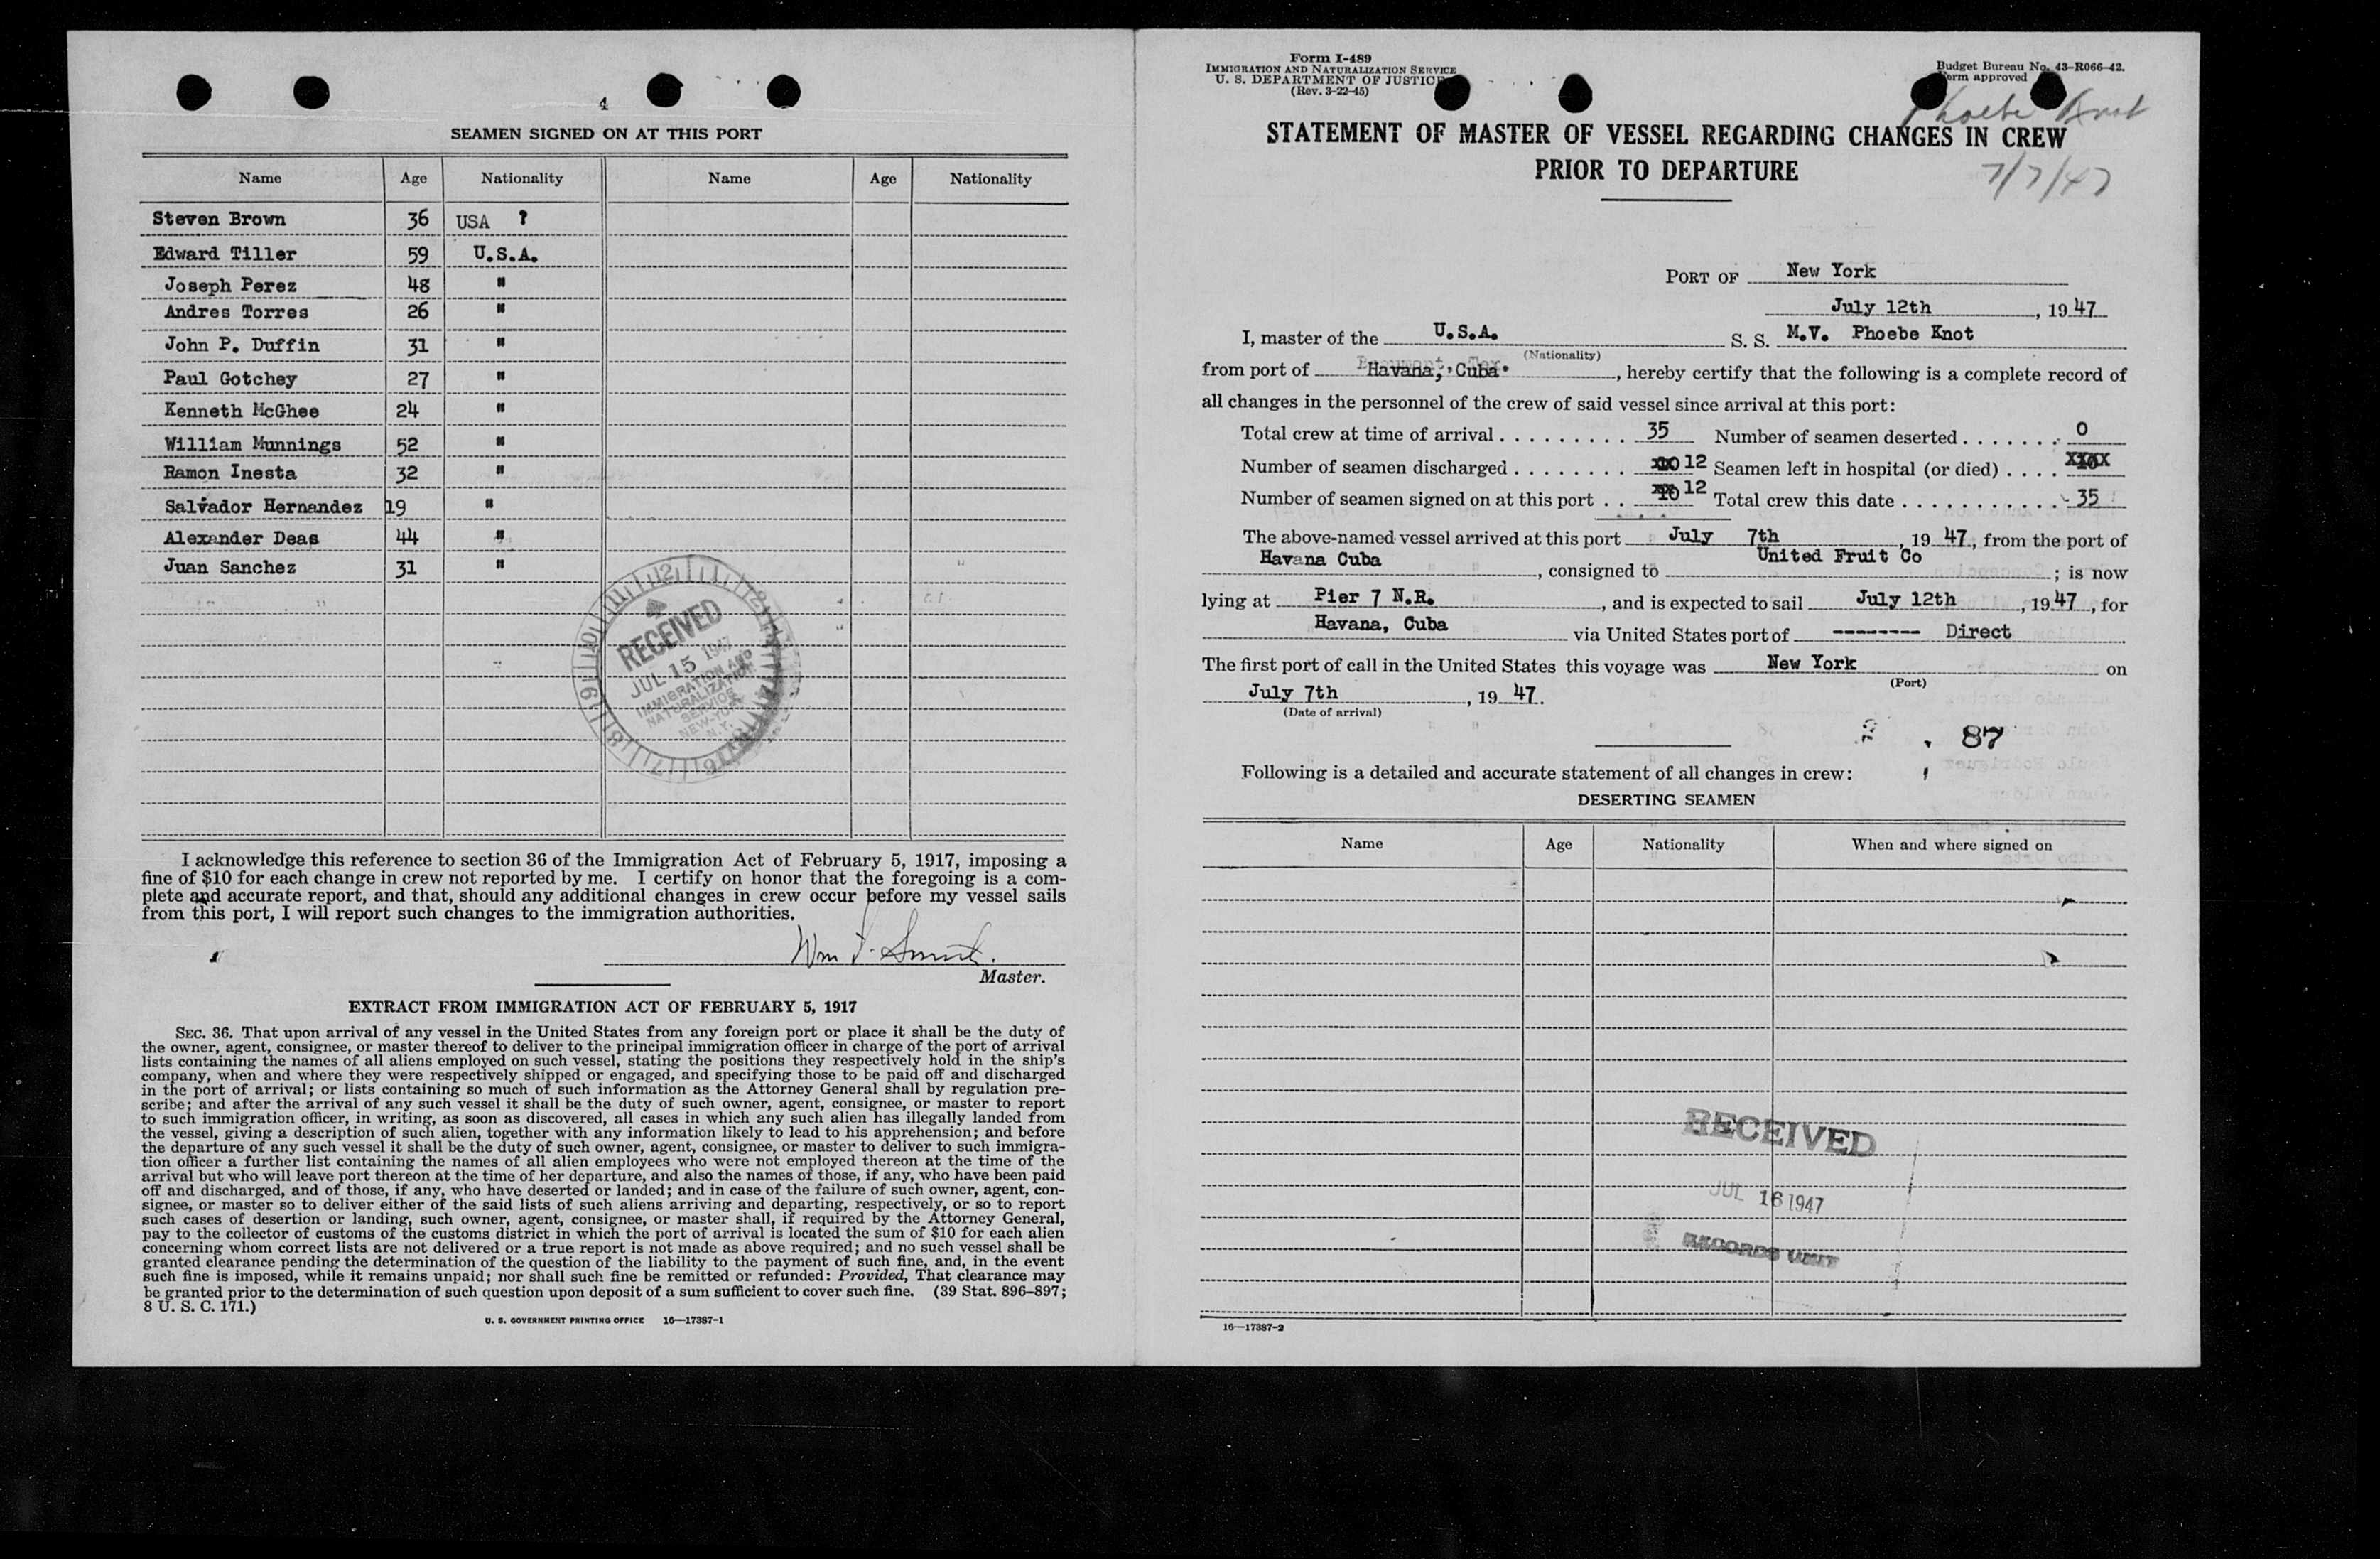 4
SEAMEN SIGNED ON AT THIS PORT
Name Age Nationality Name Age Nationality
Steven Brown 36 USA ?
Edward Tiller 59 U.S.A.
Joseph Perez 48 "
Andres Torres 26 "
John P. Duffin 31 "
Paul Gotchey 27 "
Kenneth McGhee 24 "
William Munnings 52 "
Ramon Inesta 32 "
Salvador Hernandez 19 "
Alexander Deas 44 "
Juan Sanchez 31 "
RECEIVED
JUL 15 1947
IMMIGRATION AND
NATURALIZATION
SERVICE
NEW YORK
N.Y.
I acknowledge this reference to section 36 of the Immigration Act of February 5, 1917, imposing a
fine of $10 for each change in crew not reported by me. I certify on honor that the foregoing is a com-
plete and accurate report, and that, should any additional changes in crew occur before my vessel sails
from this port, I will report such changes to the immigration authorities.
Master.
EXTRACT FROM IMMIGRATION ACT OF FEBRUARY 5, 1917
SEC. 36. That upon arrival of any vessel in the United States from any foreign port or place it shall be the duty of
the owner, agent, consignee, or master thereof to deliver to the principal immigration officer in charge of the port of arrival
lists containing the names of all aliens employed on such vessel, stating the positions they respectively hold in the ship's
company, when and where they were respectively shipped or engaged, and specifying those to be paid off and discharged
in the port of arrival; or lists containing so much of such information as the Attorney General shall by regulation pre-
scribe; and after the arrival of any such vessel it shall be the duty of such owner, agent, consignee, or master to report
to such immigration officer, in writing, as soon as discovered, all cases in which any such alien has illegally landed from
the vessel, giving a description of such alien, together with any information likely to lead to his apprehension; and before
the departure of any such vessel it shall be the duty of such owner, agent, consignee, or master to deliver to such immigra-
tion officer a further list containing the names of all alien employees who were not employed thereon at the time of the
arrival but who will leave port thereon at the time of her departure, and also the names of those, if any, who have been paid
off and discharged, and of those, if any, who have deserted or landed; and in case of the failure of such owner, agent, con-
signee, or master so to deliver either of the said lists of such aliens arriving and departing, respectively, or so to report
such cases of desertion or landing, such owner, agent, consignee, or master shall, if required by the Attorney General,
pay to the collector of customs of the customs district in which the port of arrival is located the sum of $10 for each alien
concerning whom correct lists are not delivered or a true report is not made as above required; and no such vessel shall be
granted clearance pending the determination of the question of the liability to the payment of such fine, and, in the event
such fine is imposed, while it remains unpaid; nor shall such fine be remitted or refunded: Provided, That clearance may
be granted prior to the determination of such question upon deposit of a sum sufficient to cover such fine. (39 Stat. 896–897;
8 U. S. C. 171.)
U. S. GOVERNMENT PRINTING OFFICE 16—17387-1
Form I-489
IMMIGRATION AND NATURALIZATION SERVICE
U. S. DEPARTMENT OF JUSTICE
(Rev. 3-22-45)
Budget Bureau No. 43-R066-42.
Form approved
Phoebe Knot
STATEMENT OF MASTER OF VESSEL REGARDING CHANGES IN CREW
PRIOR TO DEPARTURE
7/7/47
PORT OF New York
July 12th, 1947
I, master of the U.S.A. S. S. M.V. Phoebe Knot
(Nationality)
from port of Havana, Cuba, hereby certify that the following is a complete record of
all changes in the personnel of the crew of said vessel since arrival at this port:
Total crew at time of arrival . . . . . . . . . 35 Number of seamen deserted . . . . . . . 0
Number of seamen discharged . . . . . . . . 12 Seamen left in hospital (or died) . . . . XXXX
Number of seamen signed on at this port . . 12 Total crew this date . . . . . . . . . . . 35
The above-named vessel arrived at this port July 7th, 1947, from the port of
Havana Cuba, consigned to United Fruit Co; is now
lying at Pier 7 N.R., and is expected to sail July 12th, 1947, for
Havana, Cuba via United States port of -------- Direct
The first port of call in the United States this voyage was New York on
(Port)
July 7th, 1947.
(Date of arrival)
87
Following is a detailed and accurate statement of all changes in crew:
DESERTING SEAMEN
Name Age Nationality When and where signed on
RECEIVED
JUL 16 1947
RECORDS UNIT
16—17387-2